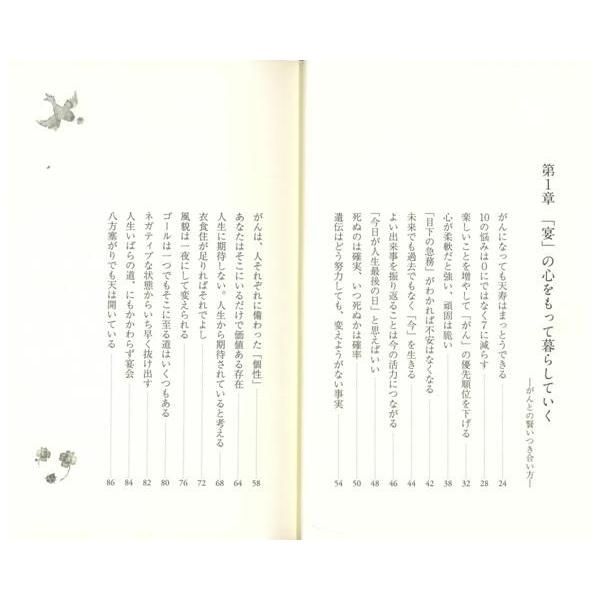 第1章 「宴」の心をもって暮らしていく
―がんとの賢いつき合い方―
がんになっても天寿はまっとうできる 24
10の悩みは0にではなく7に減らす 28
楽しいことを増やして「がん」の優先順位を下げる 32
心が柔軟だと強い、頑固は脆い 38
「目下の急務」がわかれば不安はなくなる 42
未来でも過去でもなく「今」を生きる 44
よい出来事を振り返ることは今の活力につながる 46
「今日が人生最後の日」と思えばいい 48
死ぬのは確実、いつ死ぬかは確率 50
遺伝はどう努力しても、変えようがない事実 54
がんは、人それぞれに備わった「個性」 58
あなたはそこにいるだけで価値ある存在 64
人生に期待しない。人生から期待されていると考える 68
衣食住が足りればそれでよし 72
風貌は一夜にして変えられる 76
ゴールは一つでもそこに至る道はいくつもある 80
ネガティブな状態からいち早く抜け出す 82
人生いばらの道、にもかかわらず宴会 84
八方塞がりでも天は開いている 86